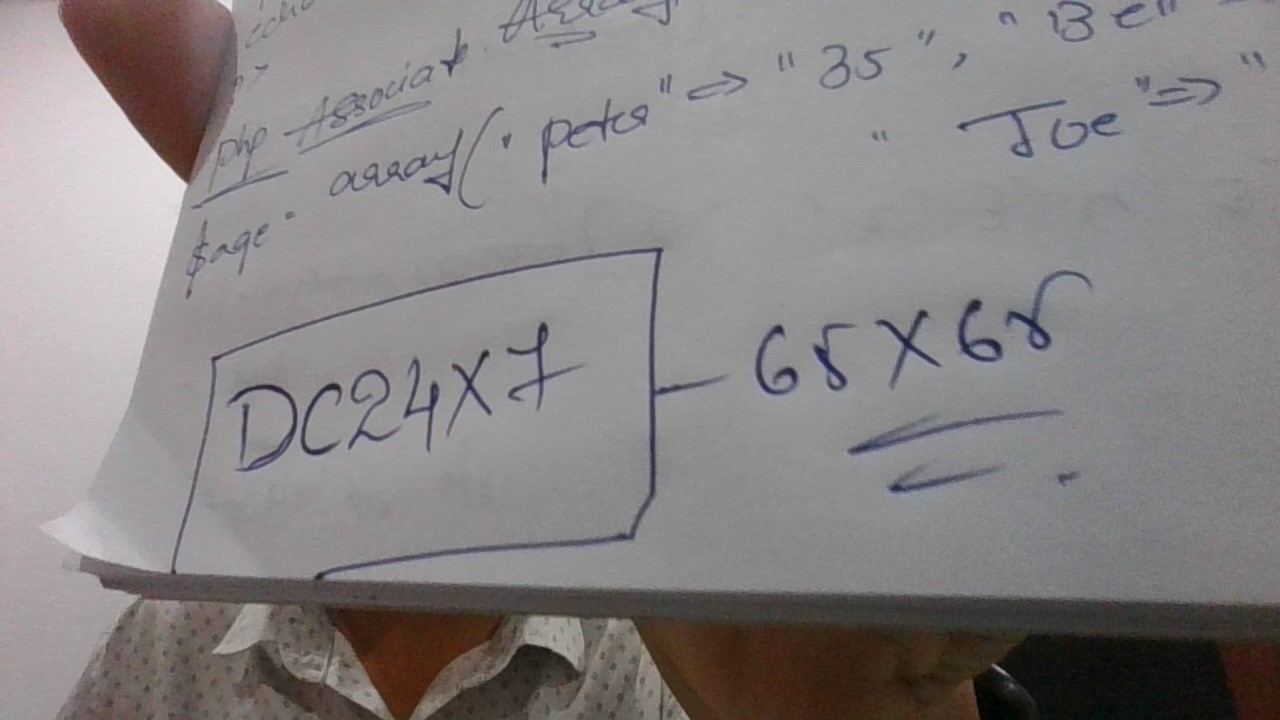 echo
php Associate Array
$age = array("peter" => "35", "Be"
"Joe" => "
DC24X7 - 68X68